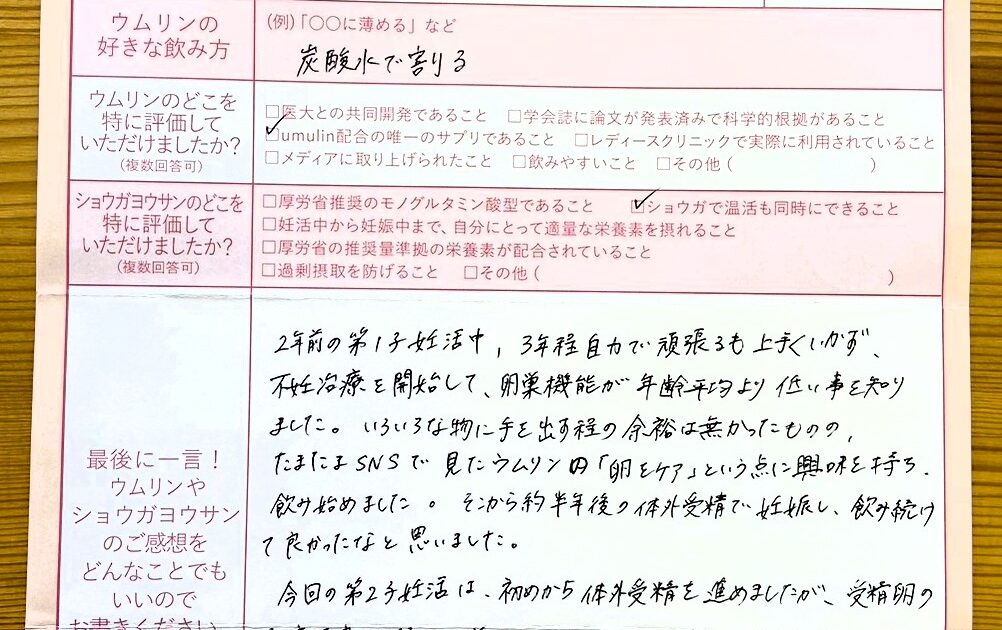 ウムリンの
好きな飲み方
(例)「〇〇に薄める」など
炭酸水で割る
ウムリンのどこを
特に評価して
いただけましたか?
(複数回答可)
□医大との共同開発であること □学会誌に論文が発表済みで科学的根拠があること
☑umulin配合の唯一のサプリであること □レディースクリニックで実際に利用されていること
□メディアに取り上げられたこと □飲みやすいこと □その他( )
ショウガヨウサンのどこを
特に評価して
いただけましたか?
(複数回答可)
□厚労省推奨のモノグルタミン酸型であること ☑ショウガで温活も同時にできること
□妊活中から妊娠中まで、自分にとって適量な栄養素を摂れること
□厚労省の推奨量準拠の栄養素が配合されていること
□過剰摂取を防げること □その他( )
最後に一言!
ウムリンや
ショウガヨウサン
のご感想を
どんなことでも
いいので
お書きください
2年前の第1子妊活中、3年程自力で頑張るも上手くいかず、
不妊治療を開始して、卵巣機能が年齢平均より低い事を知り
ました。いろいろな物に手を出す程の余裕は無かったものの、
たまたまSNSで見たウムリンの「卵をケア」という点に興味を持ち、
飲み始めました。そこから約半年後の体外受精で妊娠し、飲み続け
て良かったなと思いました。
今回の第2子妊活は、初めから体外受精を進めましたが、受精卵の